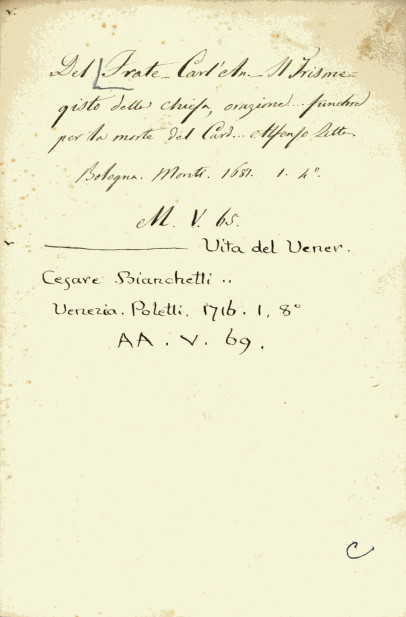 Del Frate - Carl'An. - Il Trisme-
gisto della chiesa, orazione... funebre
per la morte del Card... Alfonso Litta.
Bologna. Monti. 1681. 1. 4°.
M. V. 65.
——— Vita del Vener.
Cesare Bianchetti ..
Venezia. Poletti. 1716. 1. 8°
AA. V. 69.
C